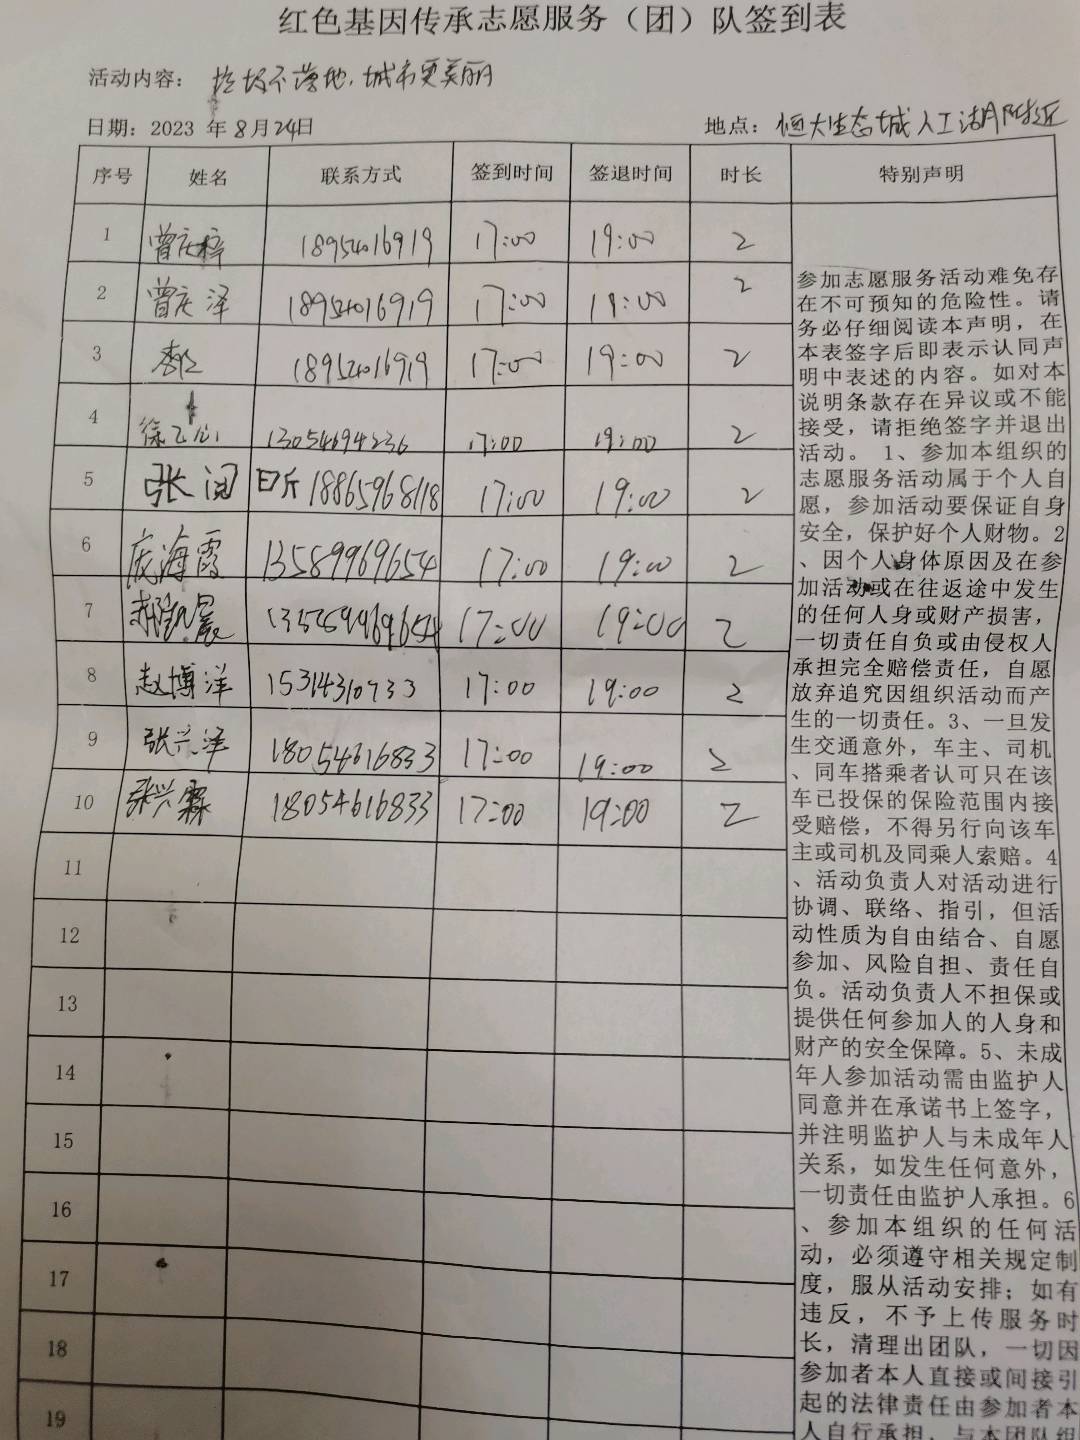 红色基因传承志愿服务（团）队签到表
活动内容：垃圾不落地，城市更美丽
日期：2023 年8月24日 地点：恒大生态城人工湖附近
序号 姓名 联系方式 签到时间 签退时间 时长 特别声明
1 曾庆梓 18954016919 17:00 19:00 2
2 曾庆泽 18954016919 17:00 19:00 2
3 18954016919 17:00 19:00 2
4 徐 13054694236 17:00 19:00 2
5 张润昕 18865968118 17:00 19:00 2
6 庞海霞 13589969654 17:00 19:00 2
7 17:00 19:00 2
8 赵博洋 15314310733 17:00 19:00 2
9 张兴泽 18054616833 17:00 19:00 2
10 张兴霖 18054616833 17:00 19:00 2
11
12
13
14
15
16
17
18
19
参加志愿服务活动难免存
在不可预知的危险性。请
务必仔细阅读本声明，在
本表签字后即表示认同声
明中表述的内容。如对本
说明条款存在异议或不能
接受，请拒绝签字并退出
活动。 1、参加本组织的
志愿服务活动属于个人自
愿，参加活动要保证自身
安全，保护好个人财物。2
、因个人身体原因及在参
加活动或在往返途中发生
的任何人身或财产损害，
一切责任自负或由侵权人
承担完全赔偿责任，自愿
放弃追究因组织活动而产
生的一切责任。3、一旦发
生交通意外，车主、司机
、同车搭乘者认可只在该
车已投保的保险范围内接
受赔偿，不得另行向该车
主或司机及同乘人索赔。4
、活动负责人对活动进行
协调、联络、指引，但活
动性质为自由结合、自愿
参加、风险自担、责任自
负。活动负责人不担保或
提供任何参加人的人身和
财产的安全保障。5、未成
年人参加活动需由监护人
同意并在承诺书上签字，
并注明监护人与未成年人
关系，如发生任何意外，
一切责任由监护人承担。6
、参加本组织的任何活
动，必须遵守相关规定制
度，服从活动安排；如有
违反，不予上传服务时
长，清理出团队，一切因
参加者本人直接或间接引
起的法律责任由参加者本
人自行承担，与本团队组